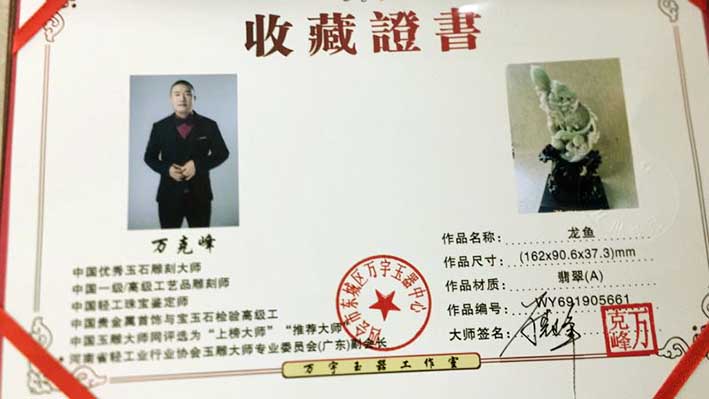 收藏證書
万克峰
中国优秀玉石雕刻大师
中国一级/高级工艺品雕刻师
中国轻工珠宝鉴定师
中国贵金属首饰与宝玉石检验高级工
中国玉雕大师网评选为“上榜大师” “推荐大师”
河南省轻工业行业协会玉雕大师专业委员会(广东)副会长
市东城区万宇玉器中心
作品名称: 龙鱼
作品尺寸: (162x90.6x37.3)mm
作品材质: 翡翠(A)
作品编号: WY691905661
大师签名:
万克峰
万宇玉器工作室